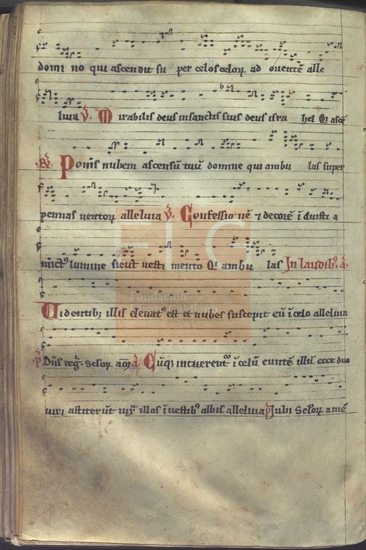 domi no qui ascendit su per celos celoꝝ ad orientē alle
luia ꝟ. Mirabilis deus in sanctis suis deus isra hel Qi ascē
℟. Ponis nubem ascensū tuū domine qui ambu las super
pennas uentoꝝ alleluia ꝟ. Confessionē ⁊ decorē iduisti a
mict᷒ lumine sicut uesti mento Qi ambu las In laudib᷒ a.
Uidentib᷒ illis eleuat᷒ est et nubes suscepit eū i celo alleluia
Dn̄s reg̃. Seloꝝ a. Cūq᷒ intuerent᷒ i celū euntē illū ecce duo
uiri astiterūt iux̄ illos i uestib᷒ albis alleluia Iubi Seloꝝ amē
FLC
Fundación